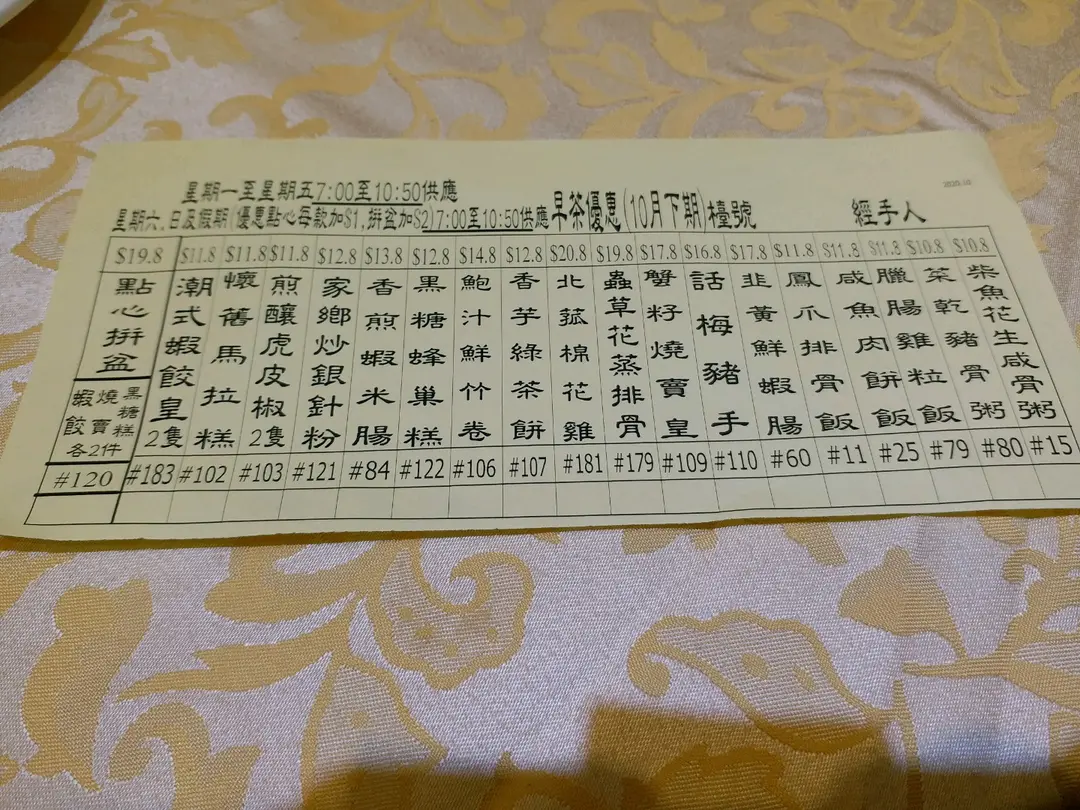 2020.10
星期一至星期五7:00至10:50供應
星期六,日及假期(優惠點心每款加$1,拼盆加$2)7:00至10:50供應
早茶優惠(10月下期)
檯號
經手人
$19.8 $11.8 $11.8 $11.8 $12.8 $13.8 $12.8 $14.8 $12.8 $20.8 $19.8 $17.8 $16.8 $17.8 $11.8 $11.8 $11.8 $10.8 $10.8
點心拼盆
黑糖糕
燒賣
蝦餃
各2件
潮式蝦餃皇2隻
懷舊馬拉糕
煎釀虎皮椒2隻
家鄉炒銀針粉
香煎蝦米腸
黑糖蜂巢糕
鮑汁鮮竹卷
香芋綠茶餅
北菰棉花雞
蟲草花蒸排骨
蟹籽燒賣皇
話梅豬手
韭黃鮮蝦腸
鳳爪排骨飯
咸魚肉餅飯
臘腸雞粒飯
菜乾豬骨粥
柴魚花生咸骨粥
#120 #183 #102 #103 #121 #84 #122 #106 #107 #181 #179 #109 #110 #60 #11 #25 #79 #80 #15